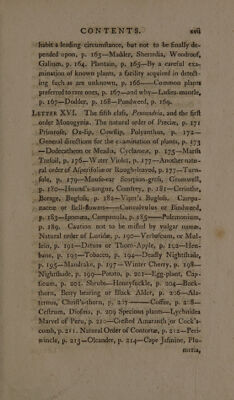 CONTENTS. xvii
habit a leading circumstance, but not to be finally de-
pended upon, p. 163—Madder, Sherardia, Woodroof,
Galium, p. 164. Plantain, p. 165—By a careful exa-
mination of known plants, a facility acquired in detect-
ing such as are unknown, p. 166——Common plants
preferred to rare ones, p. 167—and why—Ladies-mantle,
p. 167—Dodder, p. 168—Pondweed, p. 169.
LETTER XVI. The fifth class, Pentandria, and the first
order Monogynia. The natural order of Preciæ, p. 171
Primrose, Ox-lip, Cowslip, Polyanthus, p. 172—
General directions for the examination of plants, p. 173
—Dodecatheon or Meadia, Cyclamen, p. 175—Marsh
Trefoil, p. 176—Water Violet, p. 177—Another natu-
ral order of Asperifoliæ or Rough-leaved, p. 177—Turn-
sole, p. 179—Mouse-ear Scorpion-grass, Gromwell,
p. 180—Hound's-tongue, Comfrey, p. 181—Cerinthe,
Borage, Bugloss, p. 182—Viper's Bugloss. Campa-
naceæ or Bell-flowers——Convolvulus or Bindweed,
p. 183—Ipomœa, Campanula, p. 185——Polemonium,
p. 189. Caution not to be misled by vulgar names.
Natural order of Luridæ, p. 190—Verbascum, or Mul-
lein, p. 191—Datura or Thorn-Apple, p. 192—Hen-
bane, p. 193—Tobacco, p. 194—Deadly Nightshade,
p. 195—Mandrake, p. 197—Winter Cherry, p. 198—
Nightshade, p. 199—Potato, p. 201—Egg-plant, Cap-
sicum, p. 202. Shrubs—Honeysuckle, p. 204—Buck-
thorn, Berry bearing or Black Alder, p. 206—Ala-
ternus, Christ's-thorn, p. 207——Coffee, p. 208—
Cestrum, Diosma, p. 209 Specious plants—Lychnidea
Marvel of Peru, p. 210—Crested Amaranth or Cock's-
comb, p. 211. Natural Order of Contortæ, p. 212—Peri-
wincle, p. 213—Oleander, p. 214—Cape Jasmine, Plu-
meria,